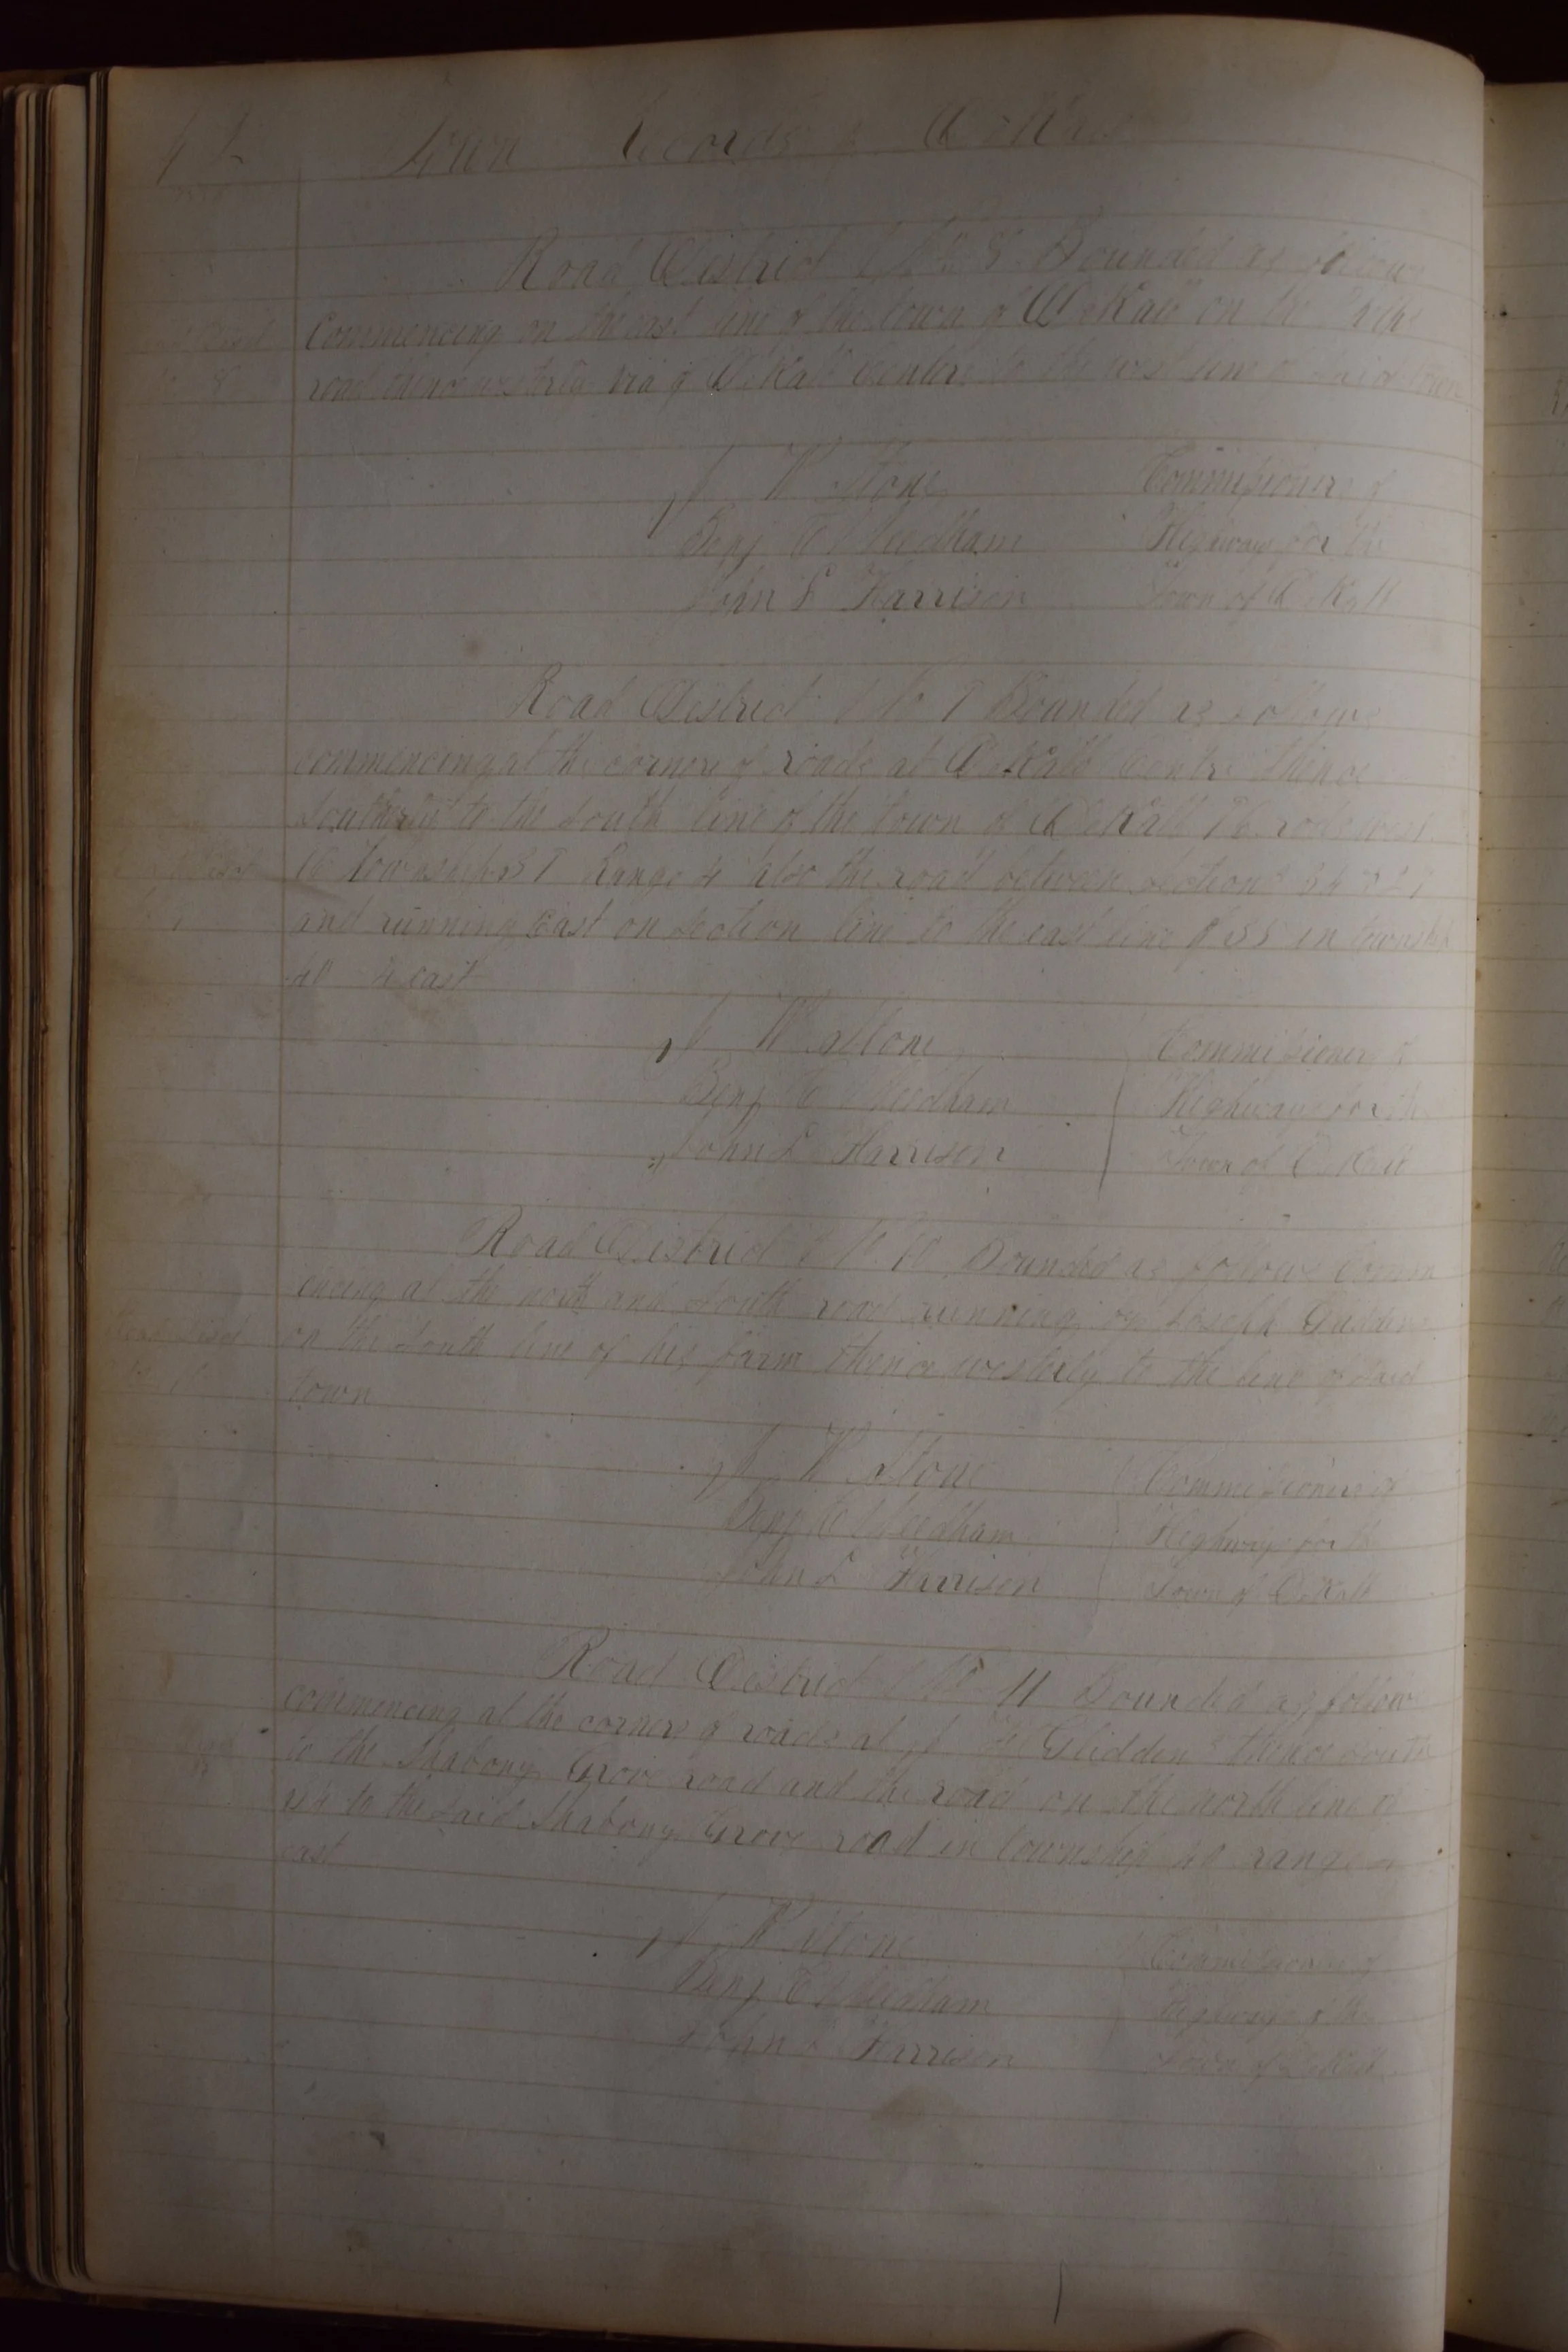 42 Town Records of DeKalb
Road District No 8 Bounded as follows
Road Dist
No 8
Commencing on the east line of the town of DeKalb on the
road thence westerly via of DeKalb Centre to the west line of said town
J W Stone Commissioners of
Benj C Needham Highways for the
John L Harrison Town of DeKalb
Road District No 9 Bounded as follows
commencing at the corners of roads at DeKalb Centre thence
Southerly to the South line of the town of DeKalb 76 rods west
Road Dist
No 9
township 39 Range 4 also the road between Sections 34
and running East on Section line to the east line of 35 in township
40 4 east
J W Stone Commissioners of
Benj C Needham Highways for the
John L Harrison Town of DeKalb
Road District No 10 Bounded as follows Comm
encing at the north and South road running by Joseph
Road Dist
No 10
on the South line of his farm thence westerly to the line of said
town
J W Stone Commissioners of
Benj C Needham Highways for the
John L Harrison Town of DeKalb
Road District No 11 Bounded as follows
commencing at the corners of roads at J F Gliddens thence South
to the Shabony Grove road and the road on the north line of
24 to the said Shabony Grove road in township 40 range
east
J W Stone Commissioners of
Benj C Needham Highways of the
John L Harrison Town of DeKalb